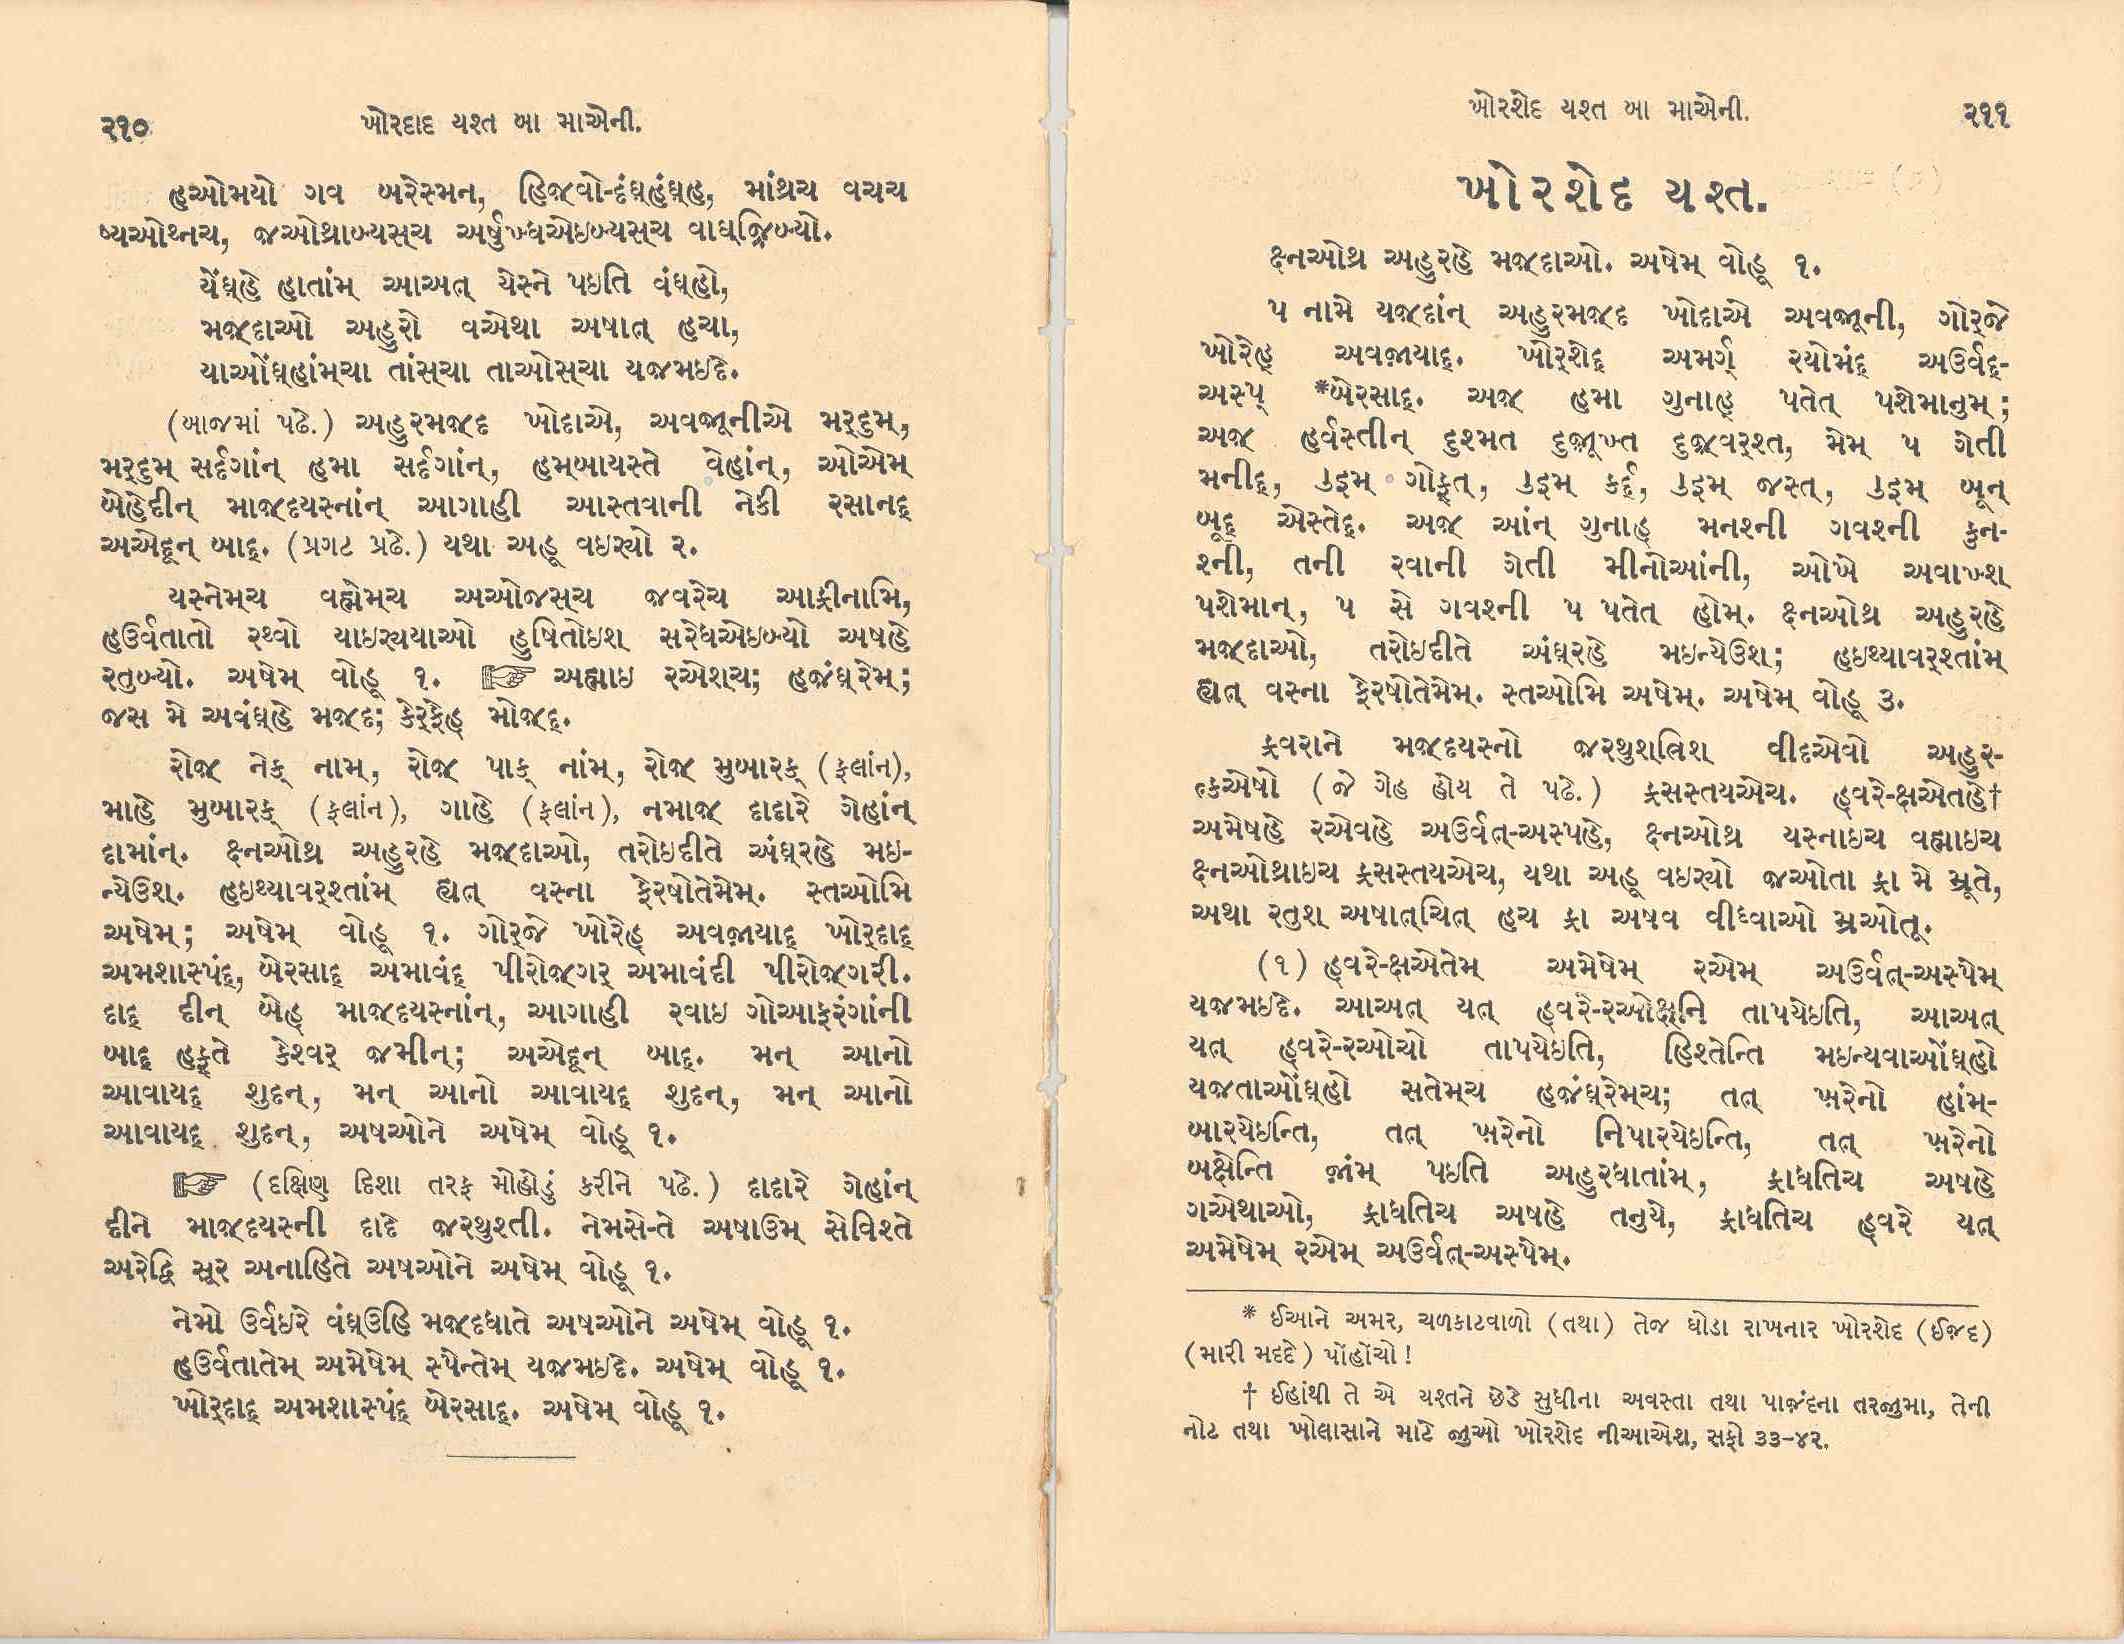 ૨૧૦ ખોરદાદ યશ્ત બા માએની.
હઓમયો ગવ બરેસ્મન, હિજ઼્વો-દંઘ્હંઘ્હ, માંથ્રચ વચચ
ષ્યઓથ્નચ, જ઼ઓથ્રાબ્યસ્ચ અર્ષુખ્ધએઇબ્યસ્ચ વાઘ્જ઼િબ્યો.
યેંઘ્હે હાતાંમ્ આઅત્ યેસ્ને પઇતિ વંઘ્હો,
મજ઼્દાઓ અહુરો વએથા અષાત્ હચા,
યાઓંઘ્હાંમ્ચા તાંસ્ચા તાઓસ્ચા યજ઼મઇદે.
(બાજમાં પઢે.) અહુરમજ઼્દ ખોદાએ, અવજ઼ૂનીએ મર્દુમ્,
મર્દુમ્ સર્દ્દગાંન્ હમા સર્દ્દગાંન્, હમ્બાયસ્તે વેહાંન્, ઓએમ્
બેહેદીન્ માજ઼્દયસ્નાંન્ આગાહી આસ્તવાની નેકી રસાનદ્
અએદૂન્ બાદ્. (પ્રગટ પ્રઢે.) યથા અહૂ વઇર્યો ૨.
યસ્નેમ્ચ વહ્મેમ્ચ અઓજસ્ચ જ઼વરેચ આફ્રીનામિ,
હઉર્વતાતો રથ્વો યાઇર્યયાઓ હુષિતોઇશ સરેધએઇબ્યો અષહે
રતુબ્યો. અષેમ્ વોહૂ ૧. ☞ અહ્માઇ રએશ્ચ; હજ઼ંઘ્રેમ્;
જસ મે અવંઘ્હે મજ઼્દ; કેર્ફેહ્ મોજ઼્દ્.
રોજ઼ નેક્ નામ્, રોજ઼ પાક્ નાંમ્, રોજ઼ મુબારક્ (ફલાંન),
માહે મુબારક્ (ફલાંન), ગાહે (ફલાંન), નમાજ઼ દાદારે ગેહાંન્
દામાંન્. ક્ષ્નઓથ્ર અહુરહે મજ઼્દાઓ, તરોઇદીતે અંઘ્રહે મઇ-
ન્યેઉશ. હઇથ્યાવર્શ્તાંમ્ હ્યત્ વસ્ના ફેરષોતેમેમ્. સ્તઓમિ
અષેમ્; અષેમ્ વોહૂ ૧. ગોર્જે ખોરેહ્ અવજ઼ાયાદ્ ખોર્દાદ્
અમશાસ્પંદ્, બેરસાદ્ અમાવંદ્ પીરોજ઼્ગર્ અમાવંદી પીરોજ઼્ગરી.
દાદ્ દીન્ બેહ્ માજ઼્દયસ્નાંન્, આગાહી રવાઇ ગોઆફરંગાંની
બાદ્ હફ્તે કેશ્વર્ જમીન્; અએદૂન્ બાદ્. મન્ આનો
આવાયદ્ શુદન્, મન્ આનો આવાયદ્ શુદન્, મન્ આનો
આવાયદ્ શુદન્, અષઓને અષેમ્ વોહૂ ૧.
☞ (દક્ષિણ દિશા તરફ મોહોડું કરીને પઢે.) દાદારે ગેહાંન્
દીને માજ઼્દયસ્ની દાદે જ઼રથુશ્તી. નેમસે-તે અષાઉમ્ સેવિશ્તે
અરેદ્વિ સૂર અનાહિતે અષઓને અષેમ્ વોહૂ ૧.
નેમો ઉર્વઇરે વંઘ્ઉહિ મજ઼્દધાતે અષઓને અષેમ્ વોહૂ ૧.
હઉર્વતાતેમ્ અમેષેમ્ સ્પેન્તેમ્ યજ઼મઇદે. અષેમ્ વોહૂ ૧.
ખોર્દાદ્ અમશાસ્પંદ્ બેરસાદ્. અષેમ્ વોહૂ ૧.
ખોરશેદ યશ્ત બા માએની. ૨૧૧
ખોરશેદ યશ્ત.
ક્ષ્નઓથ્ર અહુરહે મજ઼્દાઓ. અષેમ્ વોહૂ ૧.
પ નામે યજ઼દાંન્ અહુરમજ઼્દ ખોદાએ અવજ઼ૂની, ગોર્જે
ખોરેહ્ અવજ઼ાયાદ્. ખોર્શેદ્ અમર્ગ્ રયોમંદ્ અઉર્વદ્-
અસ્પ્ *બેરસાદ્. અજ઼ હમા ગુનાહ્ પતેત્ પશેમાનુમ્;
અજ઼ હર્વસ્તીન્ દુશ્મત દુજ઼ૂખ્ત દુજ઼્વર્શ્ત, મેમ્ પ ગેતી
મનીદ્, ઉઇમ્ ગોફ્ત્, ઉઇમ્ કર્દ્, ઉઇમ્ જસ્ત્, ઉઇમ્ બૂન્
બૂદ્ એસ્તેદ્. અજ઼ આંન્ ગુનાહ્ મનશ્ની ગવશ્ની કુન-
શ્ની, તની રવાની ગેતી મીનોઆંની, ઓખે અવાખ્શ
પશેમાન્, પ સે ગવશ્ની પ પતેત્ હોમ્. ક્ષ્નઓથ્ર અહુરહે
મજ઼્દાઓ, તરોઇદીતે અંઘ્રહે મઇન્યેઉશ; હઇથ્યાવર્શ્તાંમ્
હ્યત્ વસ્ના ફેરષોતેમેમ્. સ્તઓમિ અષેમ્. અષેમ્ વોહૂ ૩.
ફ્રવરાને મજ઼્દયસ્નો જ઼રથુશત્રિશ વીદએવો અહુર-
ત્કએષો (જે ગેહ હોય તે પઢે.) ફ્રસસ્તયએચ. હ્વરે-ક્ષએતહે†
અમેષહે રએવહે અઉર્વત્-અસ્પહે, ક્ષ્નઓથ્ર યસ્નાઇચ વહ્માઇચ
ક્ષ્નઓથ્રાઇચ ફ્રસસ્તયએચ, યથા અહૂ વઇર્યો જ઼ઓતા ફ્રા મે મ્રૂતે,
અથા રતુશ્ અષાત્ચિત્ હચ ફ્રા અષવ વીધ્વાઓ મ્રઓતૂ.
(૧) હ્વરે-ક્ષએતેમ્ અમેષેમ્ રએમ્ અઉર્વત્-અસ્પેમ્
યજ઼મઇદે. આઅત્ યત્ હ્વરે-રઓક્ષ્નિ તાપયેઇતિ, આઅત્
યત્ હ્વરે-રઓચો તાપયેઇતિ, હિશ્તેન્તિ મઇન્યવાઓંઘ્હો
યજ઼તાઓંઘ્હો સતેમ્ચ હજ઼ંઘ્રેમ્ચ; તત્ ખ઼રેનો હાંમ્-
બારયેઇન્તિ, તત્ ખ઼રેનો નિપારયેઇન્તિ, તત્ ખ઼રેનો
બક્ષેન્તિ જ઼ાંમ્ પઇતિ અહુરધાતાંમ્, ફ્રાધતિચ અષહે
ગએથાઓ, ફ્રાધતિચ અષહે તનુયે, ફ્રાધતિચ હ્વરે યત્
અમેષેમ્ રએમ્ અઉર્વત્-અસ્પેમ્.
* ઈઆને અમર, ચળકાટવાળો (તથા) તેજ ઘોડા રાખનાર ખોરશેદ (ઈજ઼દ)
(મારી મદદે) પોંહોંચો!
† ઈહાંથી તે એ યશ્તને છેડે સુધીના અવસ્તા તથા પાજ઼ંદના તરજુમા, તેની
નોટ તથા ખોલાસાને માટે જુઓ ખોરશેદ નીઆએશ, સફો ૩૩-૪૨.